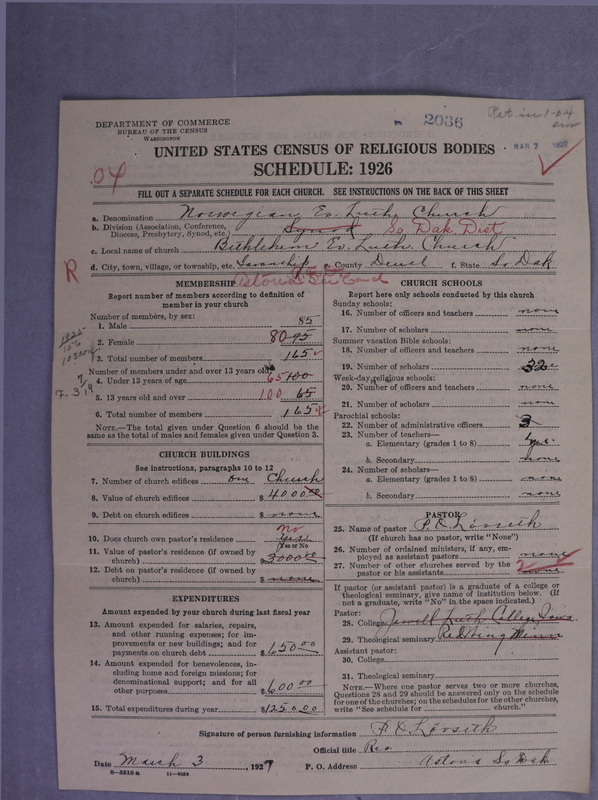 DEPARTMENT OF COMMERCE
BUREAU OF THE CENSUS
WASHINGTON
2036
Ret. in 1-04
MAR 7 1927
UNITED STATES CENSUS OF RELIGIOUS BODIES
SCHEDULE: 1926
04
FILL OUT A SEPARATE SCHEDULE FOR EACH CHURCH. SEE INSTRUCTIONS ON THE BACK OF THIS SHEET
a. Denomination Norwegian Ev. Luth. Church
b. Division (Association, Conference, Diocese, Presbytery, Synod, etc.) Synod So. Dak. Dist.
c. Local name of church Bethlehem Ev. Luth. Church
d. City, town, village, or township, etc. Township e. County Deuel f. State So Dak
R
Astoria See Card
MEMBERSHIP
Report number of members according to definition of
member in your church
Number of members, by sex:
1. Male 85
2. Female 80 95
3. Total number of members 165
Number of members under and over 13 years old:
4. Under 13 years of age 65 100
5. 13 years old and over 100 65
6. Total number of members 165
NOTE.—The total given under Question 6 should be the
same as the total of males and females given under Question 3.
CHURCH BUILDINGS
See instructions, paragraphs 10 to 12
7. Number of church edifices One Church
8. Value of church edifices $4000.00
9. Debt on church edifices $ none
No
10. Does church own pastor's residence Yes
(Yes or No)
11. Value of pastor's residence (if owned by
church) $3000.00
12. Debt on pastor's residence (if owned by
church) $ none
EXPENDITURES
Amount expended by your church during last fiscal year
13. Amount expended for salaries, repairs,
and other running expenses; for im-
provements or new buildings; and for
payments on church debt $650.00
14. Amount expended for benevolences, in-
cluding home and foreign missions; for
denominational support; and for all
other purposes $600.00
15. Total expenditures during year $1250.00
CHURCH SCHOOLS
Report here only schools conducted by this church
Sunday schools:
16. Number of officers and teachers none
17. Number of scholars none
Summer vacation Bible schools:
18. Number of officers and teachers none
19. Number of scholars 32
Week-day religious schools:
20. Number of officers and teachers none
21. Number of scholars none
Parochial schools:
22. Number of administrative officers 3
23. Number of teachers—
a. Elementary (grades 1 to 8) yes
b. Secondary none
24. Number of scholars—
a. Elementary (grades 1 to 8) none
b. Secondary none
PASTOR
25. Name of pastor
(If church has no pastor, write "None")
26. Number of ordained ministers, if any, em-
ployed as assistant pastors none
27. Number of other churches served by the
pastor or his assistants 2 none
If pastor (or assistant pastor) is a graduate of a college or
theological seminary, give name of institution below. (If
not a graduate, write "No" in the space indicated.)
Pastor:
28. College Jewell Luth College Iowa
29. Theological seminary Red Wing Minn
Assistant pastor:
30. College
31. Theological seminary
NOTE.—Where one pastor serves two or more churches,
Questions 28 and 29 should be answered only on the schedule
for one of the churches; on the schedules for the other churches,
write "See schedule for church."
Signature of person furnishing information
Official title Rev
Date March 3, 1927
P. O. Address Astoria So Dak
8-5518 a 11-9024